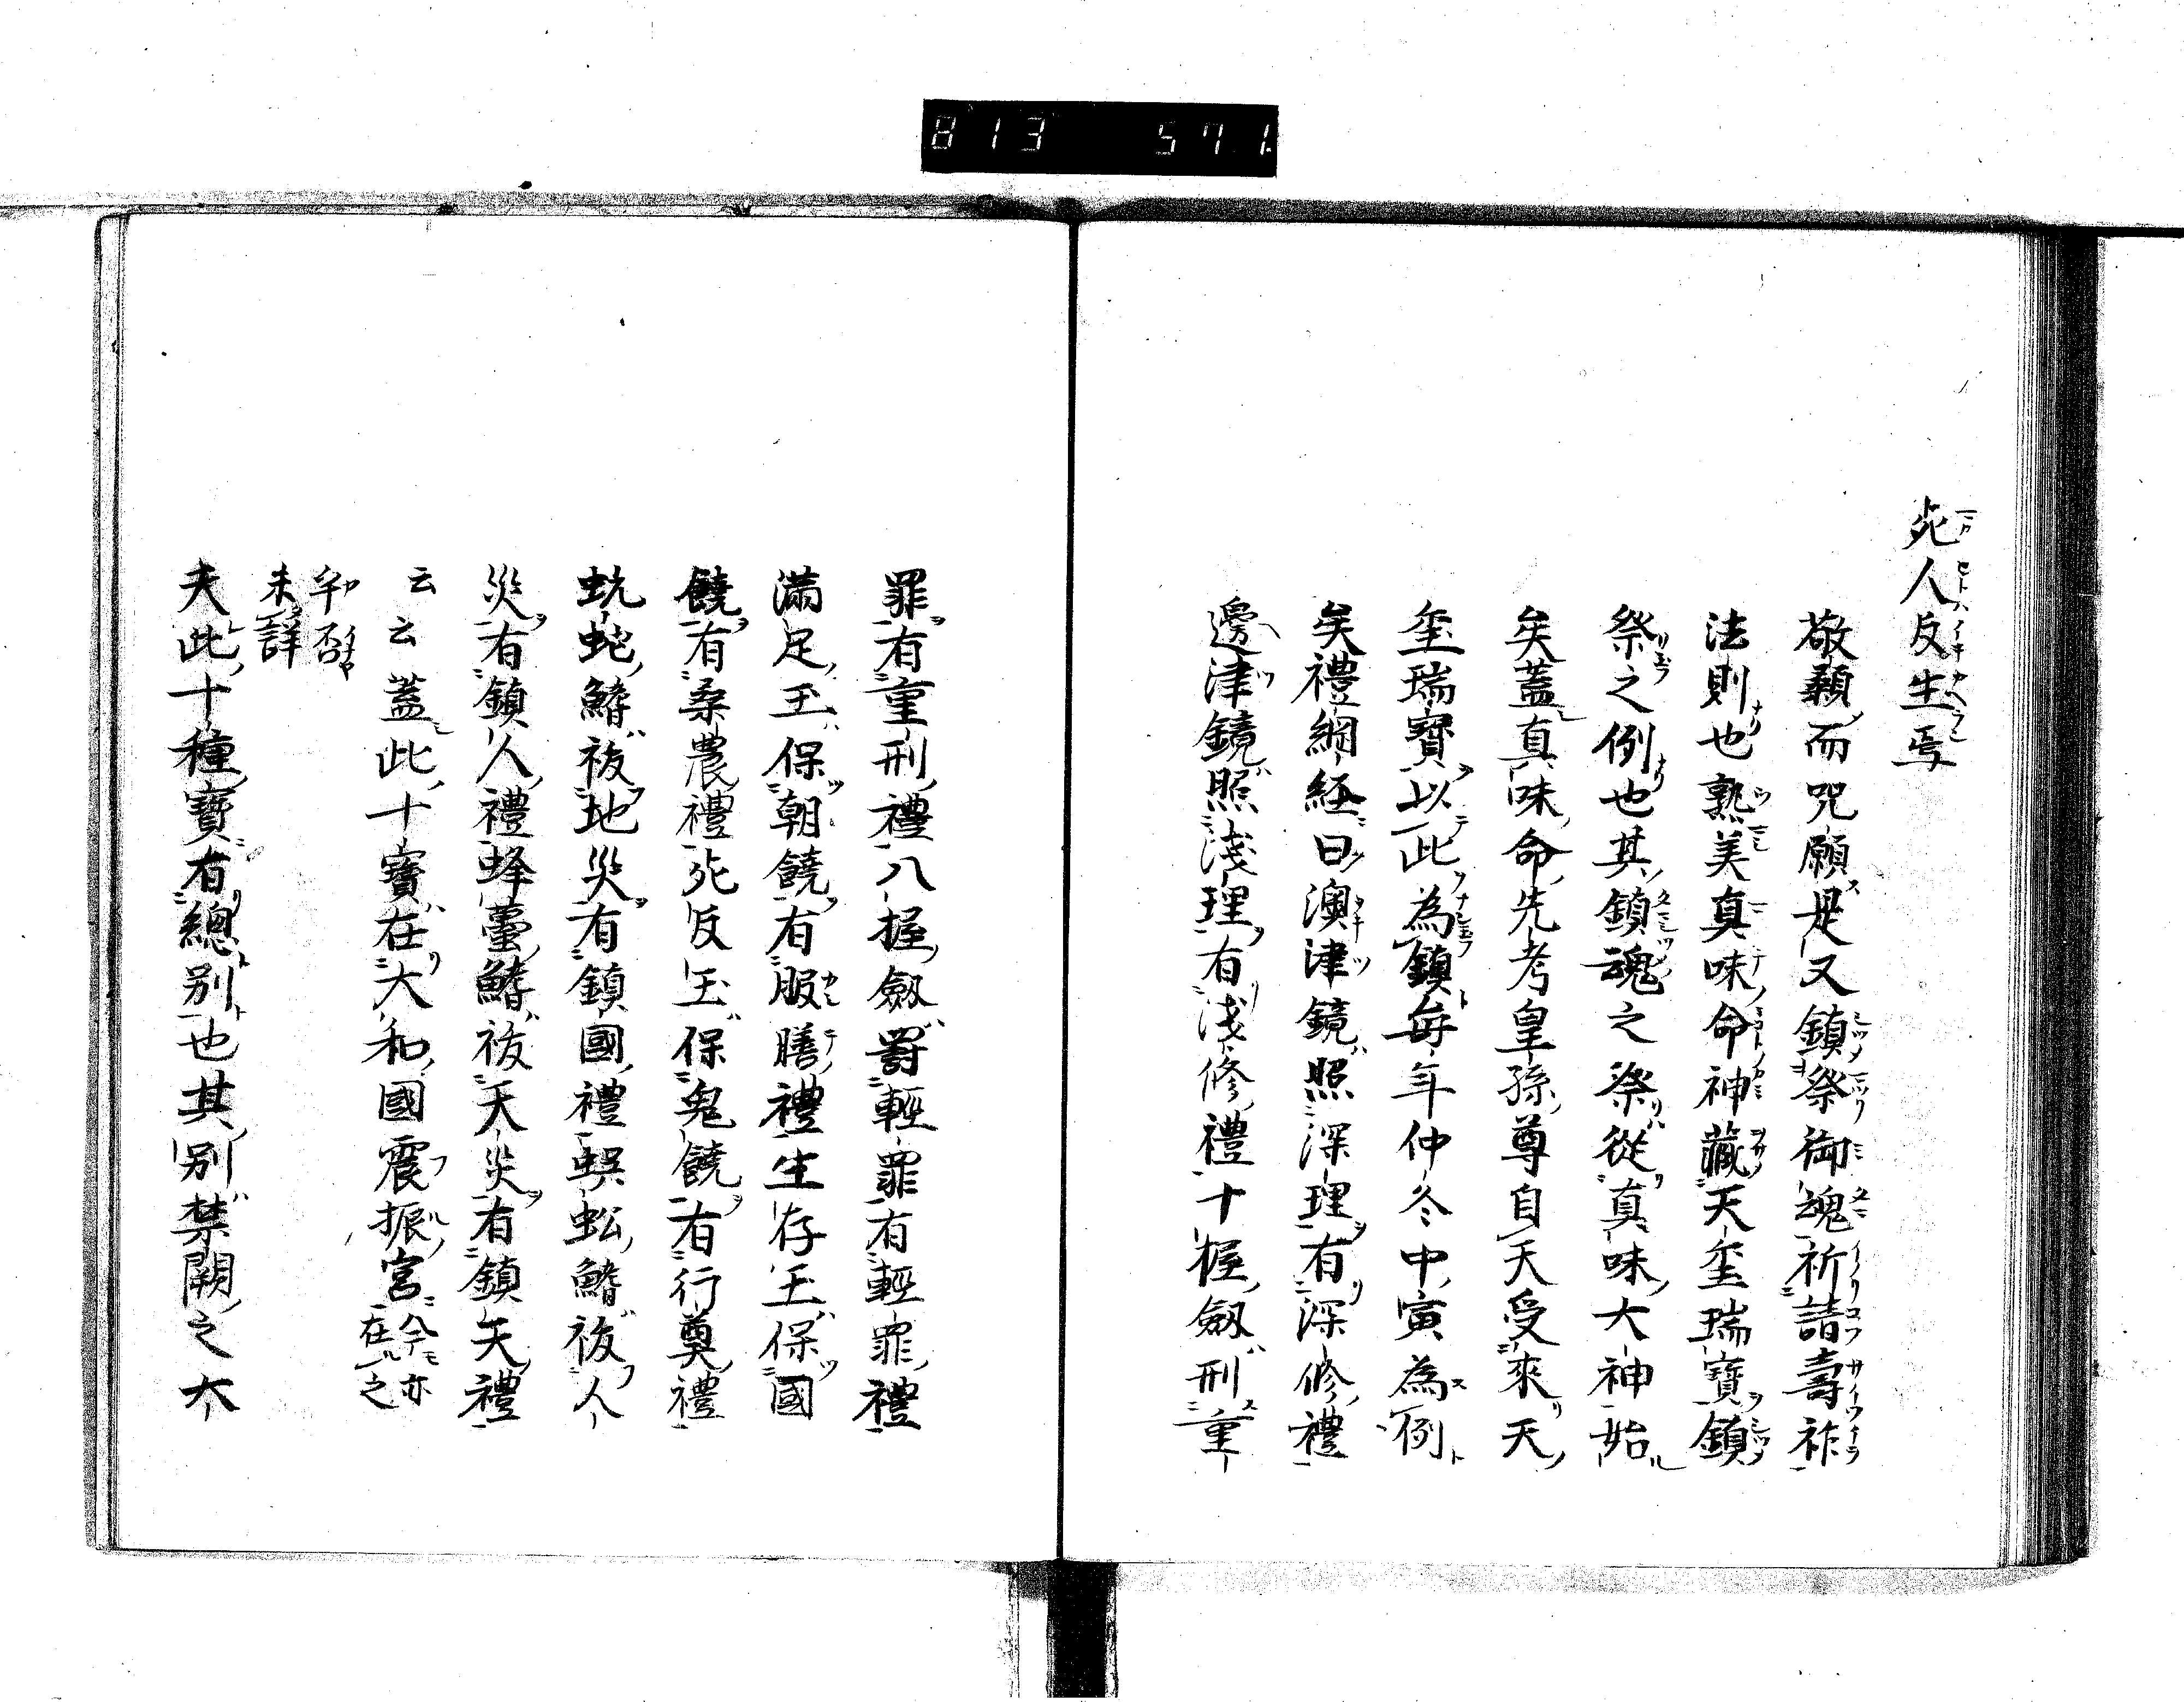 813 571
死人反生焉
敬顙而咒願是又鎮祭御魂祈請壽祚
法則也熟美真味命神藏天璽瑞寶鎮
祭之例也其鎮魂之祭從真味大神始
矣蓋真味命先考皇孫尊自天受來天
璽瑞寶以此為鎮毎年仲冬中寅為例
矣禮綱経曰澳津鏡照深理有深修禮
邊津鏡照淺理有淺修禮十握劔刑重
罪有重刑禮八握劔罸輕罪有輕罪禮
滿足玉保朝饒有服膳禮生存玉保國
饒有桒農禮死反玉保鬼饒有行奠禮
蚖蛇鰭祓地災有鎮國禮蜈蚣鰭祓人
災有鎮人禮蜂蠆鰭祓天災有鎮天禮
云云蓋此十寶在大和國震振宮八亦在之
乎否
未詳
夫此十種寶有總別也其別禁闕之大